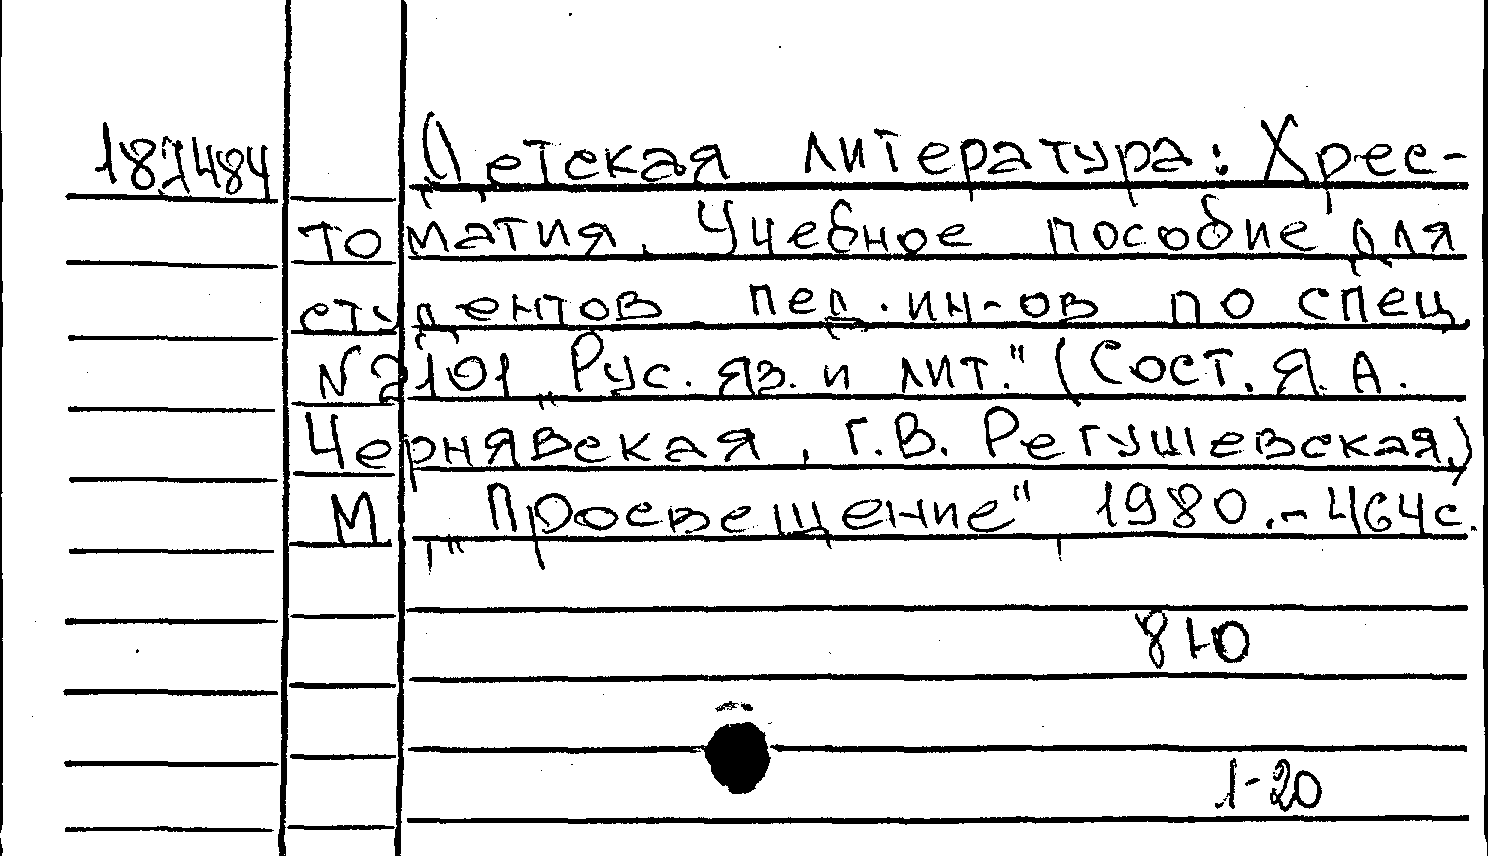 187484 Детская литература: Хрес-
томатия. Учебное пособие для
студентов пед. ин-ов по спец.
N 2101 „Рус. яз. и лит." (Сост. Я. А.
Чернявская, Г. В. Регушевская,)
М, „Просвещение" 1980.-464с.
8Ю
1-20